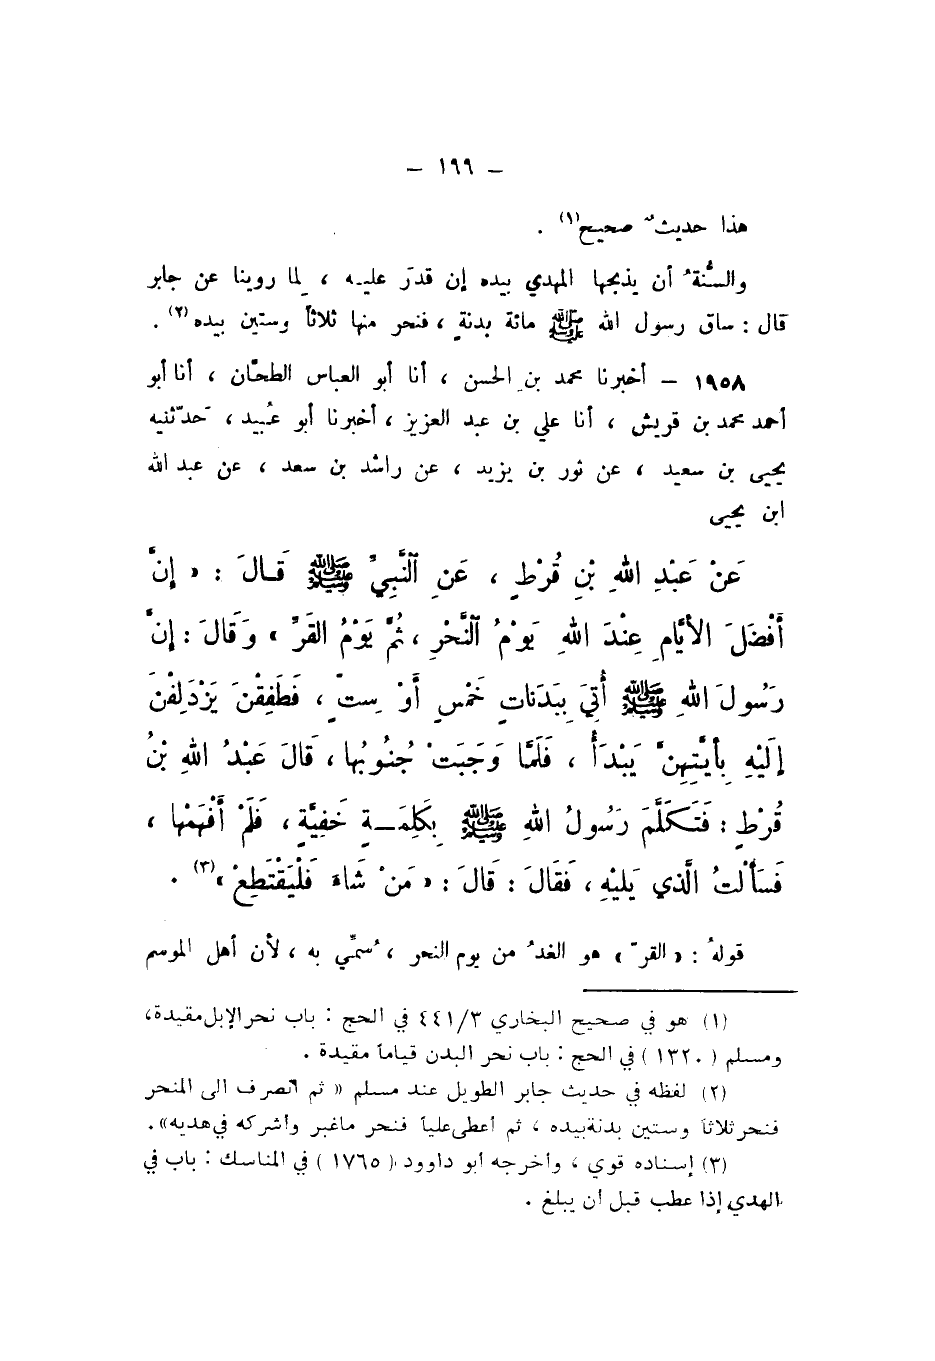 – ١٩٩ –
هذا حديثٌ صحيح(١) .
والسُّنةُ أن يذبحها المهدي بيده إن قدرَ عليه ، لما روينا عن جابر
قال : ساق رسول الله ﷺ مائة بدنةٍ ، فنحر منها ثلاثاً وستين بيده(٢) .
١٩٥٨ – أخبرنا محمد بن الحسن ، أنا أبو العباس الطحّان ، أنا أبو
أحمد محمد بن قريش ، أنا علي بن عبد العزيز ، أخبرنا أبو عُبيد ، حَدّثنيه
يحيى بن سعيد ، عن ثور بن يزيد ، عن راشد بن سعد ، عن عبد الله
ابن يحيى
عَنْ عَبْدِ اللهِ بْنِ قُرْطٍ ، عَنِ النَّبِيِّ ﷺ قَالَ : « إِنَّ
أَفْضَلَ الأَيَّامِ عِنْدَ اللهِ يَوْمُ النَّحْرِ ، ثُمَّ يَوْمُ القَرِّ » وَقَالَ : إِنَّ
رَسُولَ اللهِ ﷺ أُتِيَ بِبَدَنَاتٍ خَمْسٍ أَوْ سِتٍّ ، فَطَفِقْنَ يَزْدَلِفْنَ
إِلَيْهِ بِأَيَّتِهِنَّ يَبْدَأُ ، فَلَمَّا وَجَبَتْ جُنُوبُها ، قَالَ عَبْدُ اللهِ بْنُ
قُرْطٍ : فَتَكَلَّمَ رَسُولُ اللهِ ﷺ بِكَلِمَةٍ خَفِيَّةٍ ، فَلَمْ أَفْهَمْها ،
فَسَأَلْتُ الَّذي يَلِيْهِ ، فَقَالَ : قَالَ : « مَنْ شَاءَ فَلْيَقْتَطِعْ »(٣) .
قولهُ : « القرّ » هو الغدُ من يوم النحر ، سُمِّي به ، لأن أهل الموسم
(١) هو في صحيح البخاري ٤٤١/٣ في الحج : باب نحر الإبل مقيدة،
ومسلم ( ١٣٢٠ ) في الحج : باب نحر البدن قياماً مقيدة .
(٢) لفظه في حديث جابر الطويل عند مسلم « ثم انصرف الى المنحر
فنحر ثلاثاً وستين بدنة بيده ، ثم أعطى علياً فنحر ماغبر وأشركه في هديه» .
(٣) إسناده قوي ، وأخرجه أبو داوود ( ١٧٦٥ ) في المناسك : باب في
الهدي إذا عطب قبل أن يبلغ .